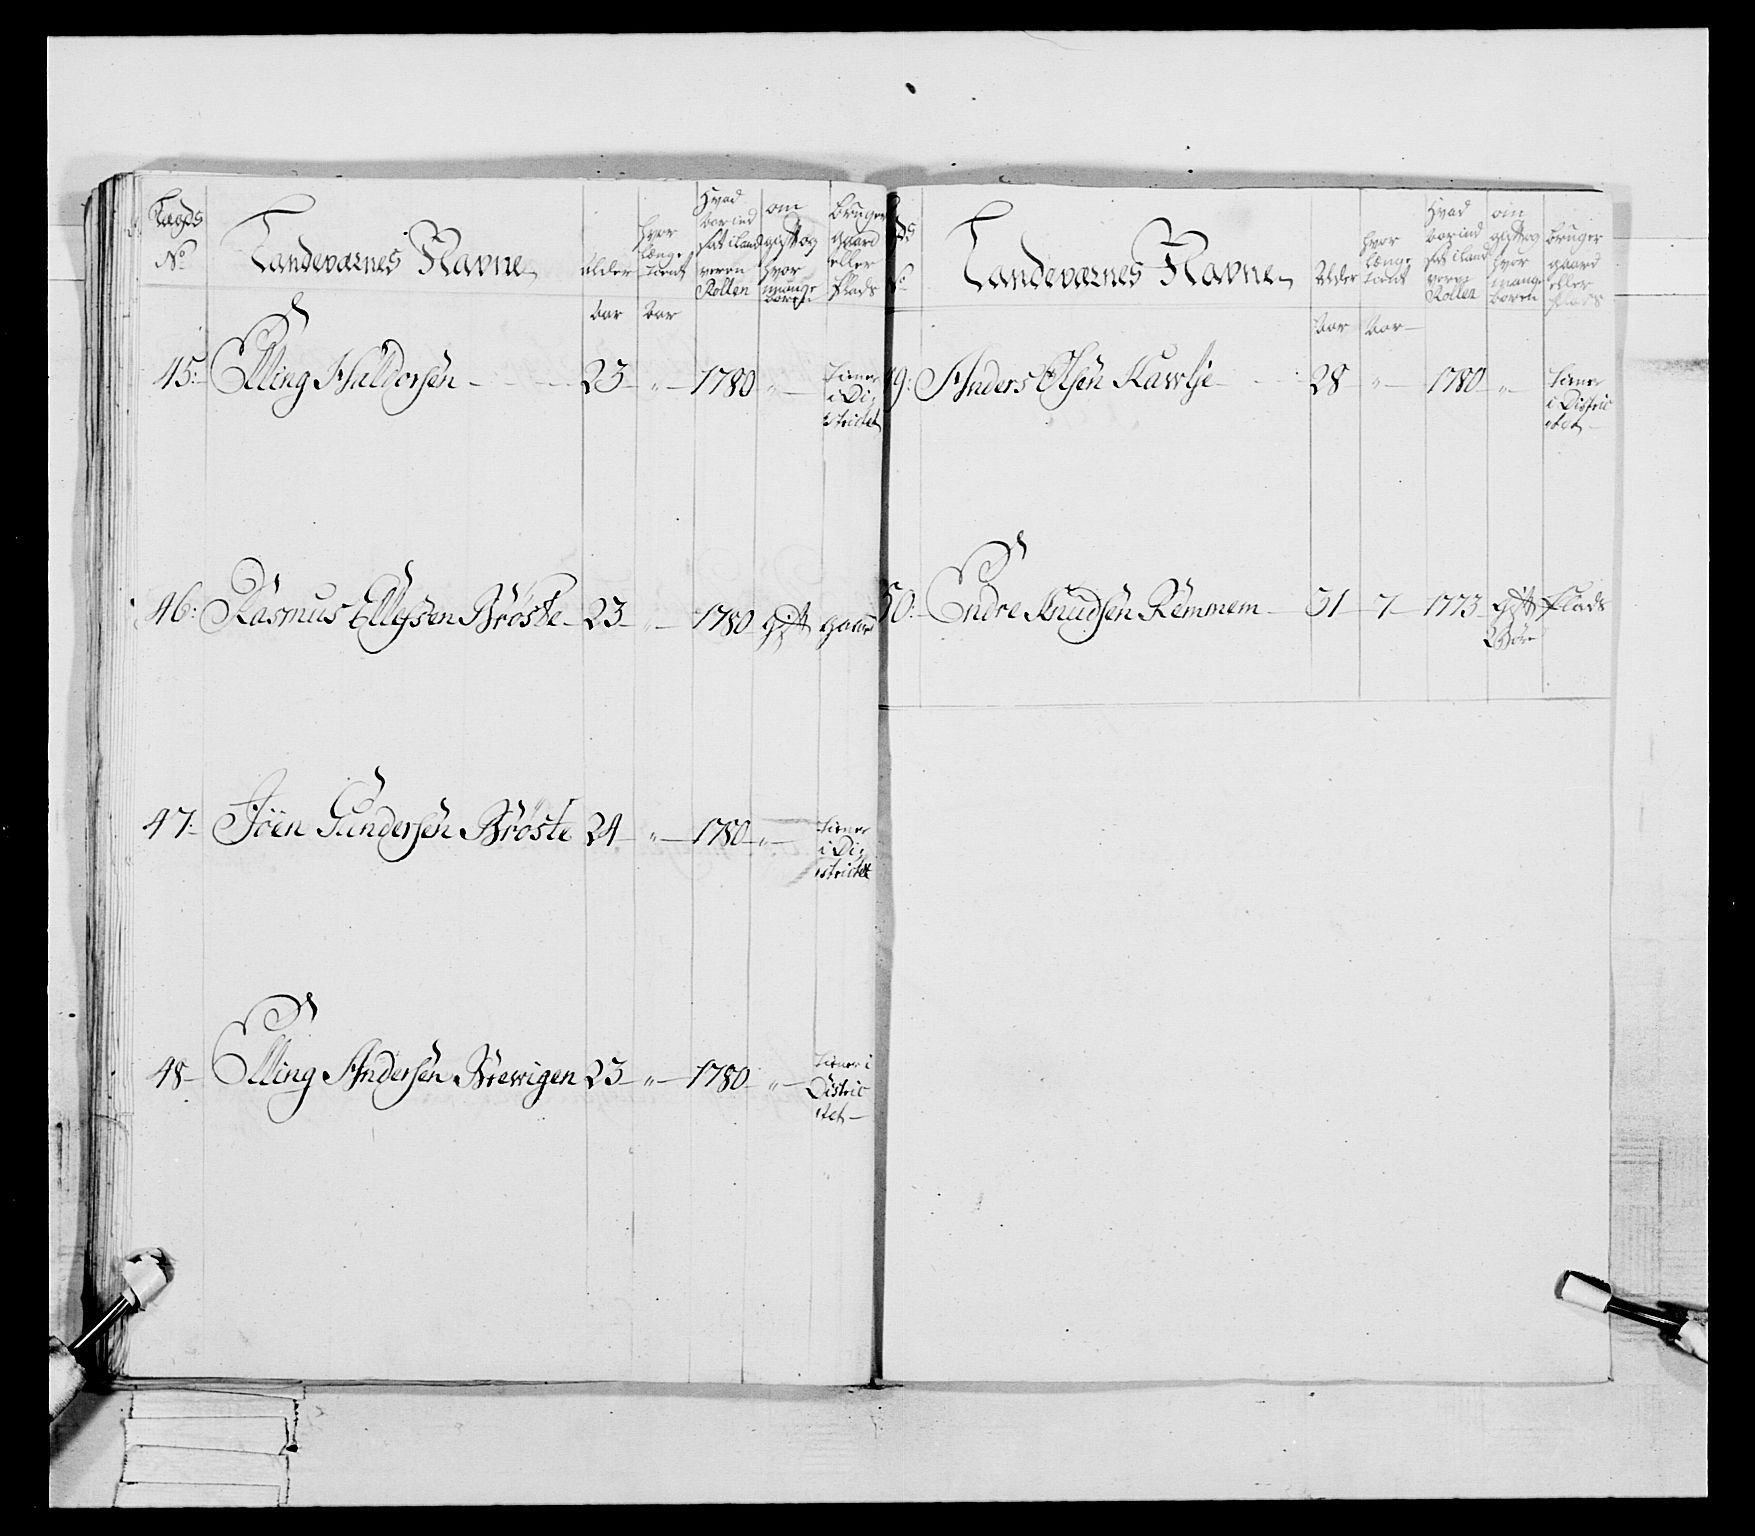 Lægds No Landeværnes Navne alder hvor længe tient Hvad Aar ind sat i Land veren Rollen om gift og hvor mange børen bruger gaard eller Plads
Aar Aar
45: Elling Haldorsen 23 " 1780 " tiener i Di strictet
46: Rasmus Ellefsen Brøste 23 " 1780 gift gaard
47: Joen Gundersen Brøste 24 " 1780 " tiener i Di strictet
48 Elling Andersen Brewigen 23 " 1780 " tiener i Distric tet
Landeværnes Navne Alder hvor længe tient Hvad Aar ind sat i Land veren Rollen om gift og hvor mange børen bruger gaard eller Plads
Aar Aar
9: Anders Olsen Kavlje 28 " 1780 " tiener i Distric tet
50: Endre Knudsen Remmem 31 7 1773 gift 2 Børn Plads